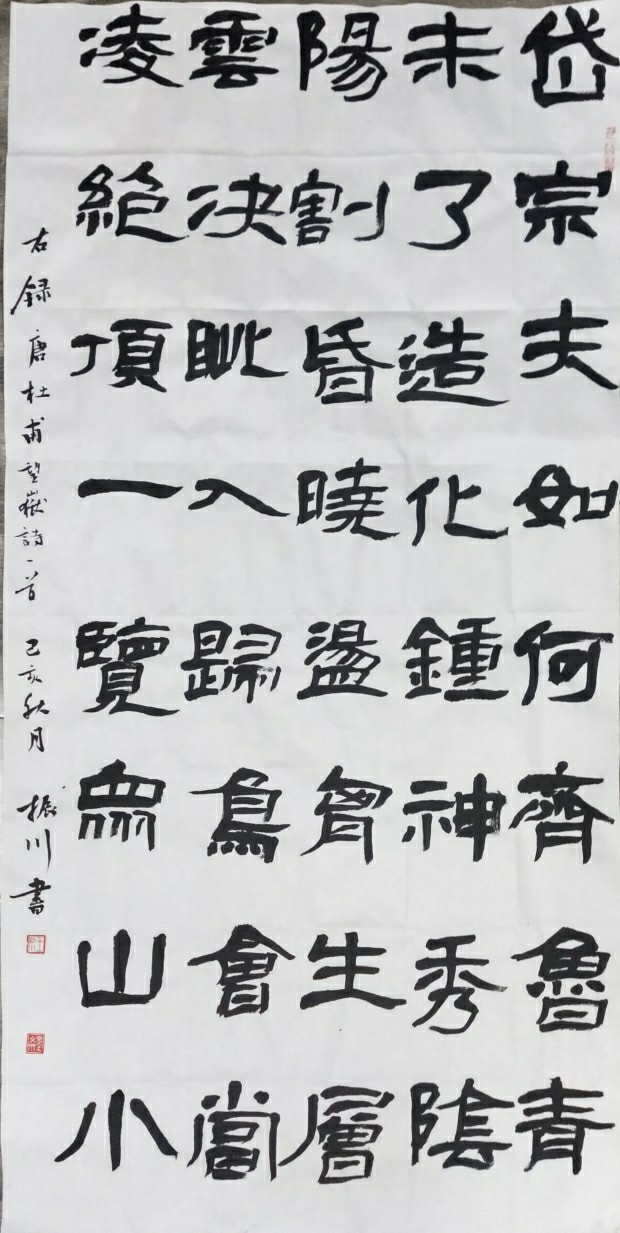 岱宗夫如何齊魯青
未了造化鍾神秀陰
陽割昏曉盪胷生層
雲决眦入歸鳥會當
凌絶頂一覽衆山小
右録唐杜甫望嶽詩一首 己亥秋月 振川書